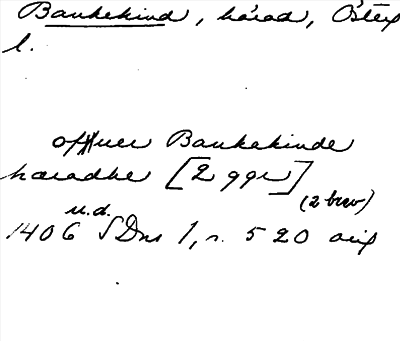 Bankekind, härad, Östeg
l.
offuer Bankakinde
haradhe [2 ggr]
(2 brev)
u.d.
1406 SDns 1, s. 520 orig